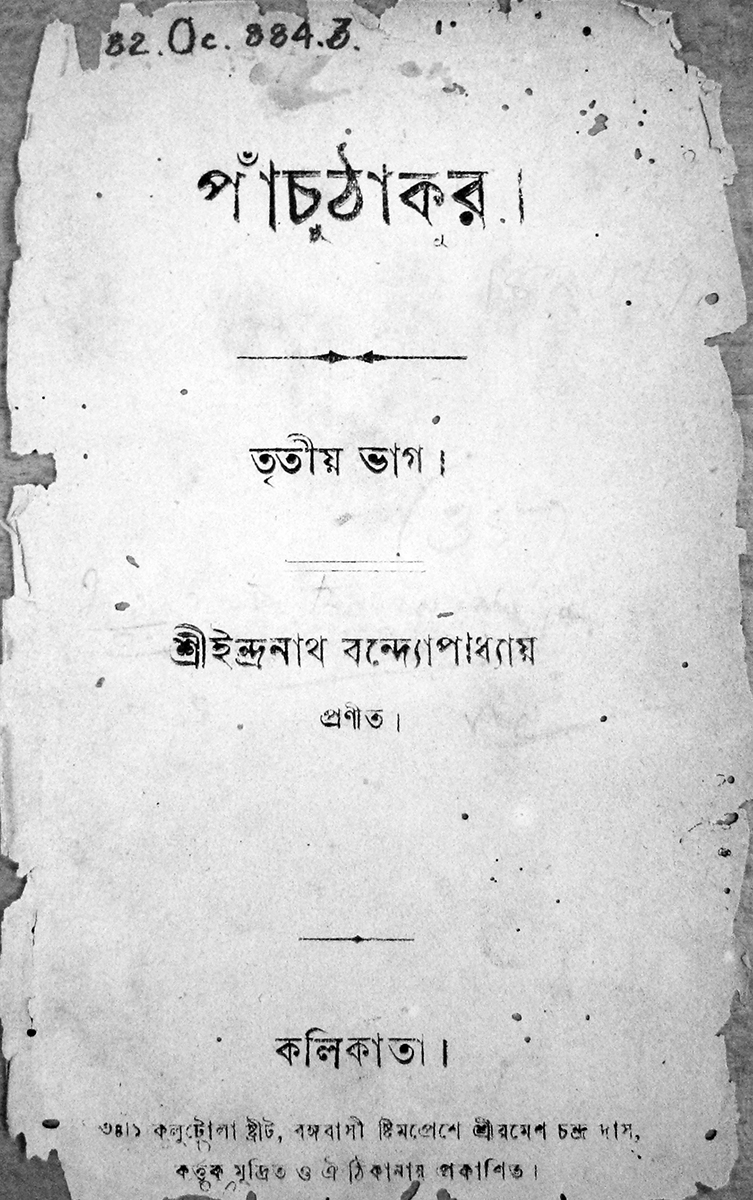 82.Oc.884.3.
পাঁচুঠাকুর।
তৃতীয় ভাগ।
শ্রীইন্দ্রনাথ বন্দ্যোপাধ্যায়
প্রণীত।
কলিকাতা।
৩৪।১ কলুটোলা ষ্ট্রীট, বঙ্গবাসী ষ্টিমপ্রেশে শ্রীরমেশ চন্দ্র দাস,
কর্ত্তৃক মুদ্রিত ও ঐ ঠিকানায় প্রকাশিত।